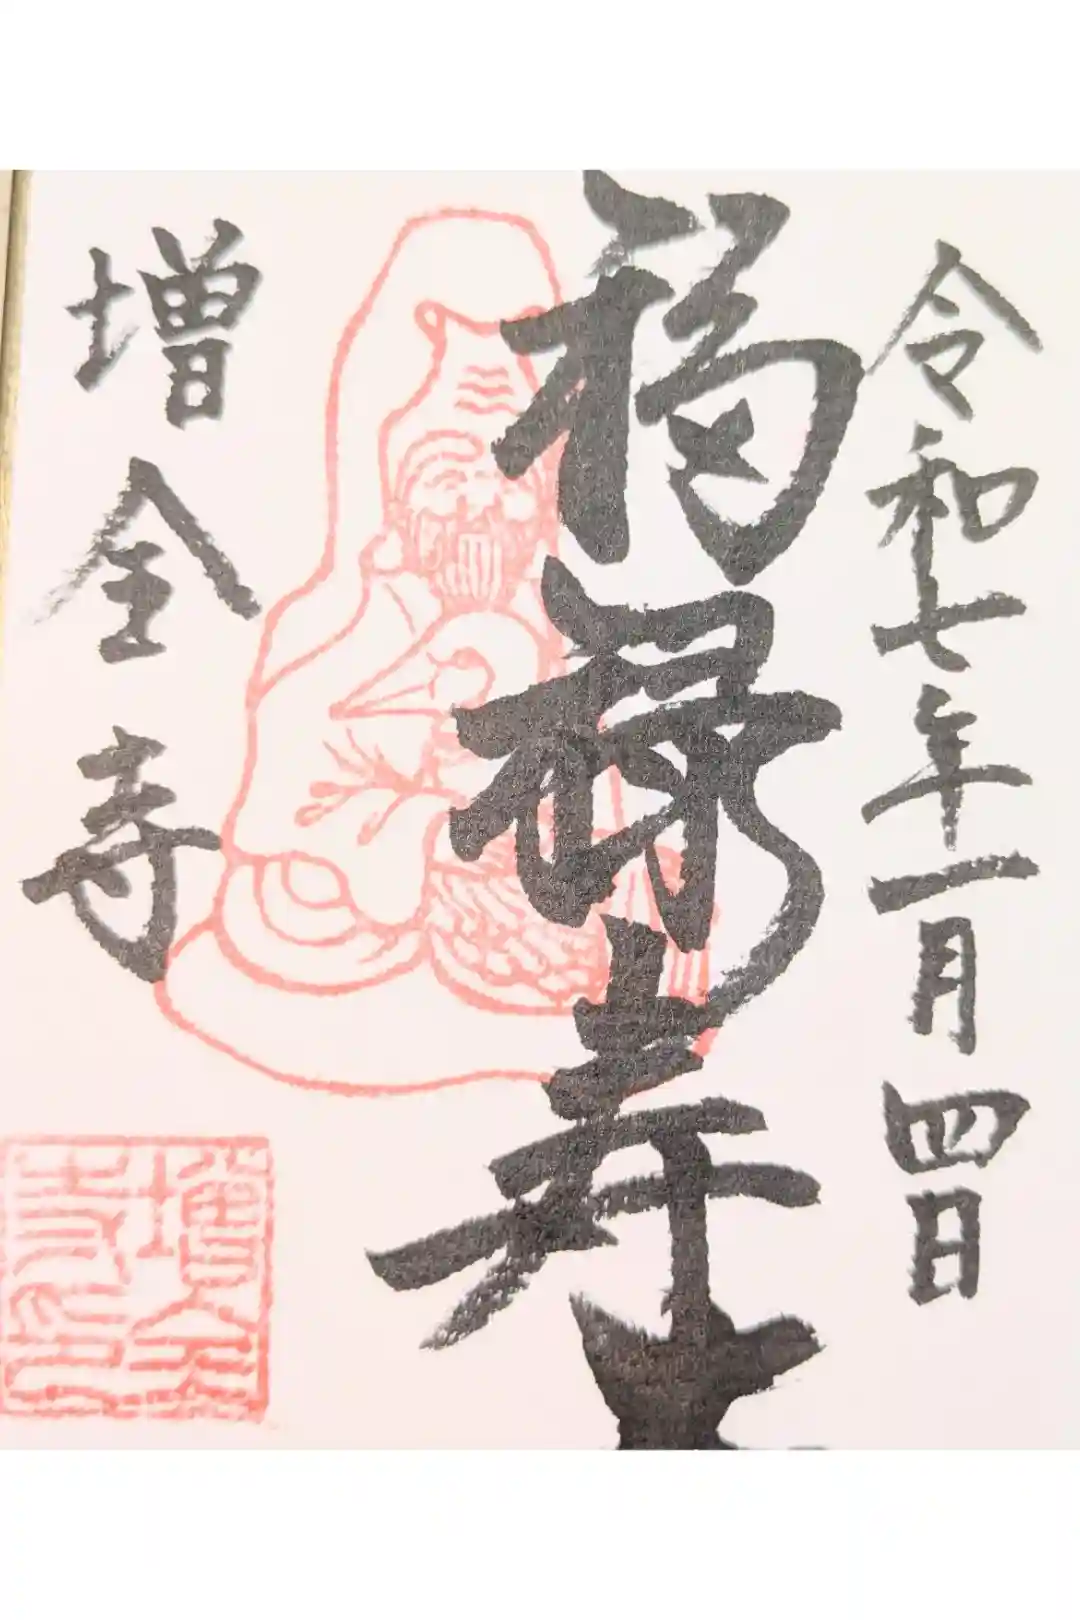 令和七年一月四日
福禄寿
増全寺
増全寺印